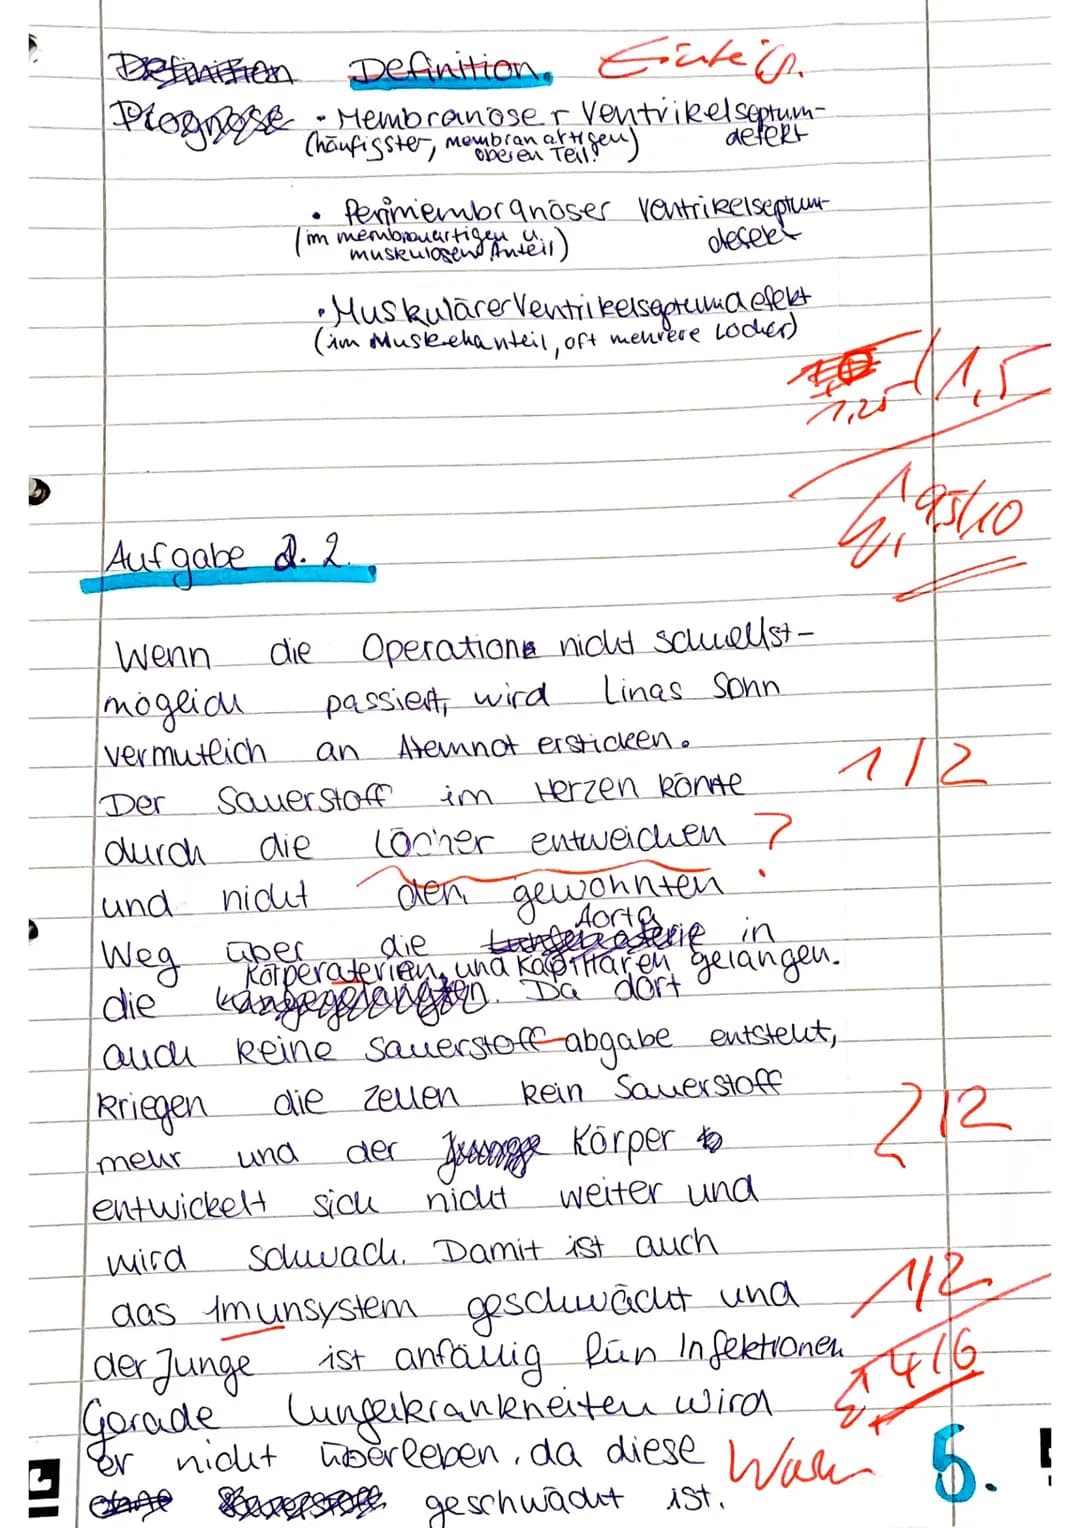 Definition Definition.
Prognose • Membranöser Ventrikelseptum-
(häufigster, membranartigen) defekt
oberen Teil!
• Perimembranöser Ventrikelseptum-
(im membranartigen u. defekt
muskulösend Anteil)
• Muskulärer Ventrikelseptumdefekt
(im Muskelanteil, oft mehrere Löcher)
1,25 / 1,5
9,5/10
Aufgabe 2.2.
Wenn die Operation nicht schnellst-
möglich passiert, wird Linas Sohn
vermutlich an Atemnot ersticken.
1/2
Der Sauerstoff im Herzen könnte
durch die Löcher entweichen ?
und nicht den gewohnten
Aorta
Weg über die in
Körperaterien und Kapillaren gelangen.
die Da dort
auch keine Sauerstoff-abgabe entsteht,
kriegen die Zellen kein Sauerstoff
2/2
mehr und der Körper
entwickelt sich nicht weiter und
wird schwach. Damit ist auch
das Imunsystem geschwächt und
1/2
der Junge ist anfällig für Infektionen
4/6
Gerade Lungenkrankheiten wird
er nicht überleben, da diese
5.
geschwächt ist.